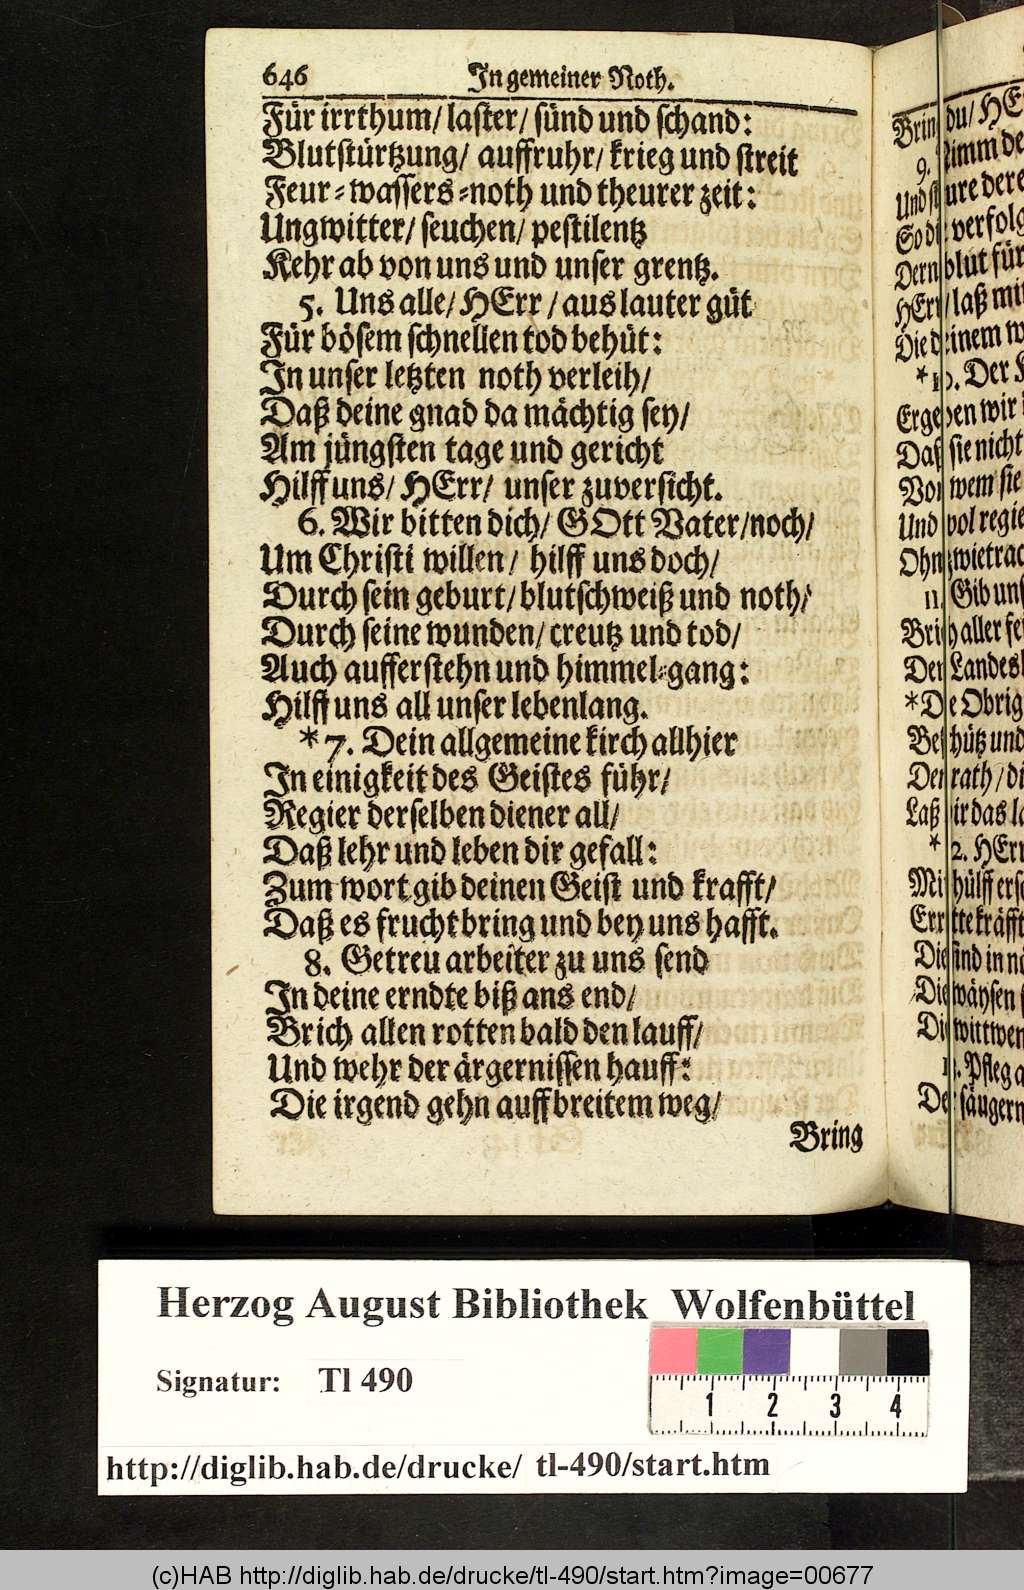 646 In gemeiner Noth.
Für irrthum/ laster/ sünd und schand:
Blutstürtzung/ auffruhr/ krieg und streit
Feur-wassers-noth und theurer zeit:
Ungwitter/ seuchen/ pestilentz
Kehr ab von uns und unser grentz.
5. Uns alle/ HErr/ aus lauter güt
Für bösem schnellen tod behüt:
In unser letzten noth verleih/
Daß deine gnad da mächtig sey/
Am jüngsten tage und gericht
Hilff uns/ HErr/ unser zuversicht.
6. Wir bitten dich/ GOtt Vater/ noch/
Um Christi willen/ hilff uns doch/
Durch sein geburt/ blutschweiß und noth/
Durch seine wunden/ creutz und tod/
Auch aufferstehn und himmel-gang:
Hilff uns all unser lebenlang.
*7. Dein allgemeine kirch allhier
In einigkeit des Geistes führ/
Regier derselben diener all/
Daß lehr und leben dir gefall:
Zum wort gib deinen Geist und krafft/
Daß es frucht bring und bey uns hafft.
8. Getreu arbeiter zu uns send
In deine erndte biß ans end/
Brich allen rotten bald den lauff/
Und wehr der ärgernissen hauff:
Die irgend gehn auff breitem weg/
Bring
du/
9.
Und
verfolg
blut für
HErr/ laß
*10. Der
wir
sie nicht
wem sie
Und
11. Gib uns
aller
Landes
Obrig
und
rath/
Laß das
*12. HErr
hülff
sind in
wäysen
wittwen
Pfleg
säugern
Herzog August Bibliothek Wolfenbüttel
Signatur: Tl 490
1 2 3 4
http://diglib.hab.de/drucke/ tl-490/start.htm
(c)HAB http://diglib.hab.de/drucke/tl-490/start.htm?image=00677